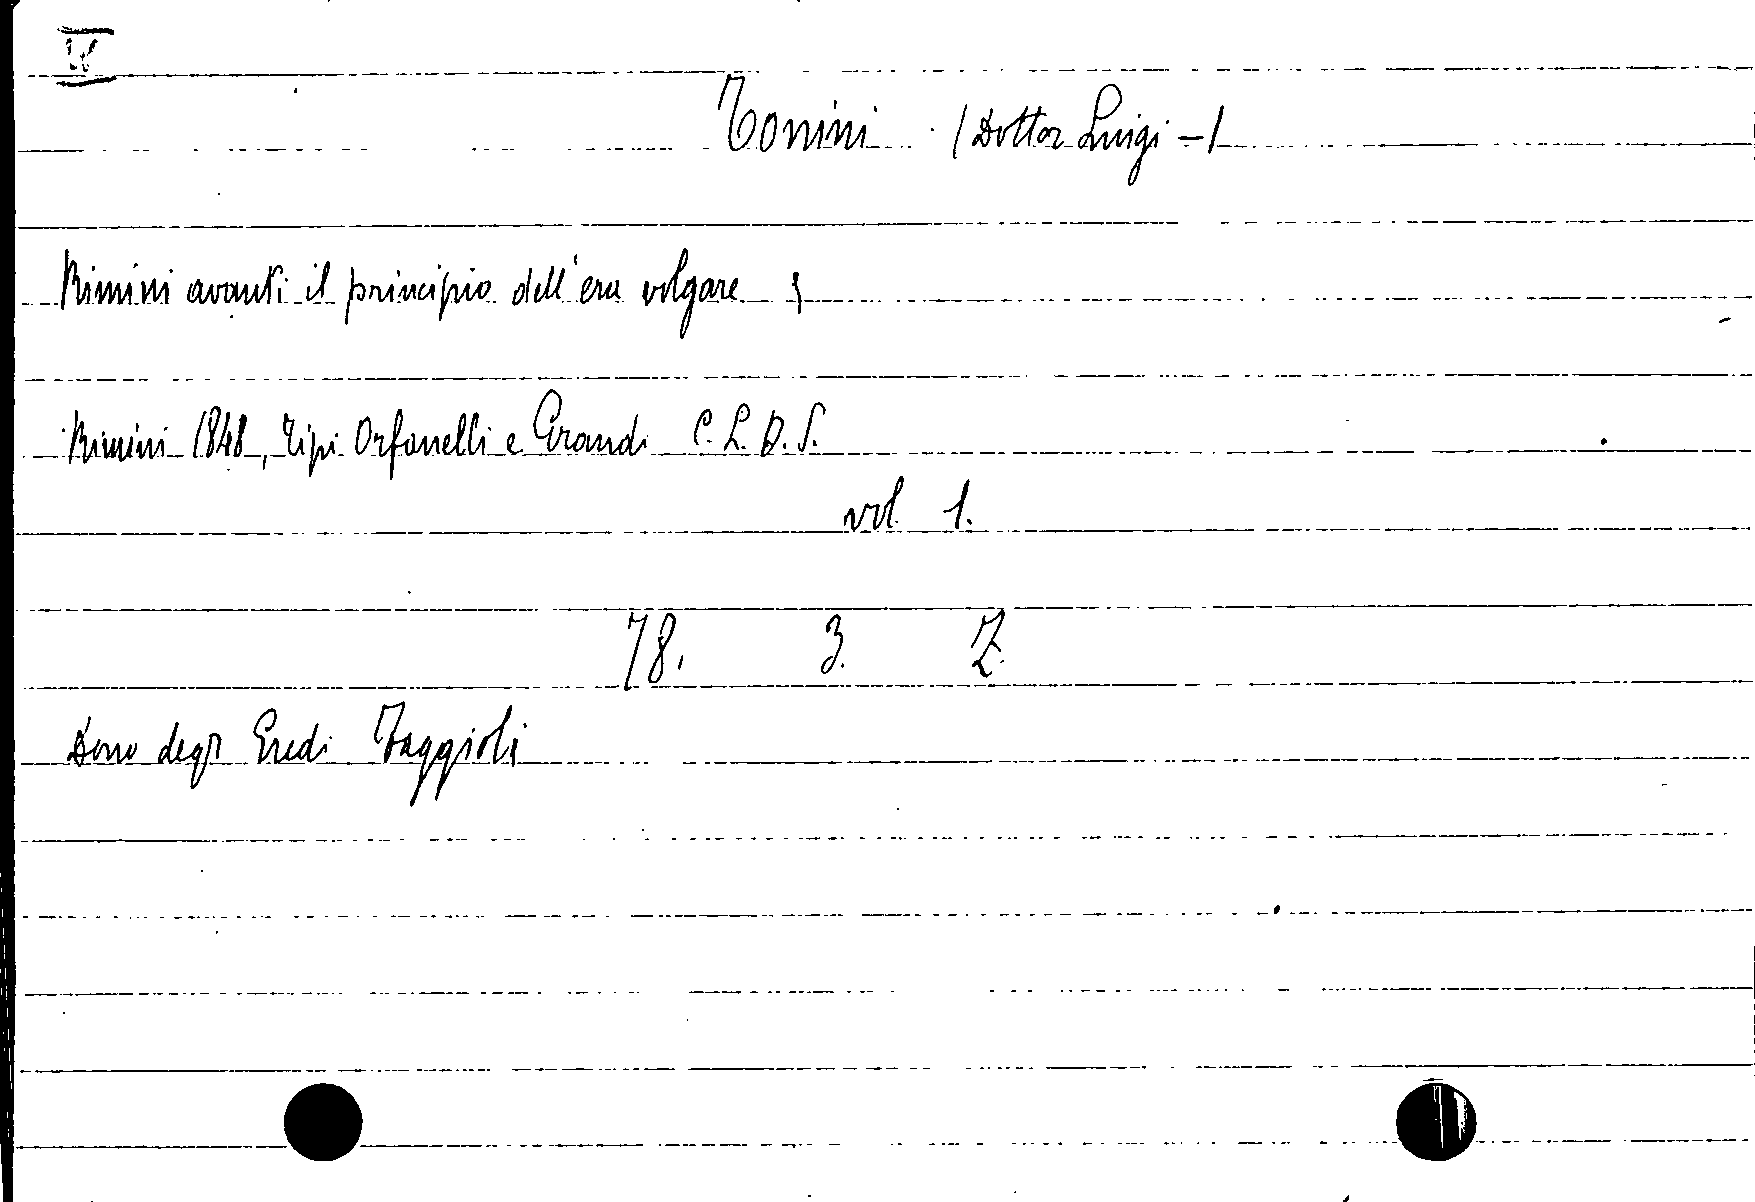 Tonini (Dottor Luigi -)
Rimini avanti il principio dell'era volgare ;
Rimini 1848, Tipi Orfanelli e Grandi C. L. D. S.
vol 1.
78. 3. Z.
Dono degli Eredi Zaggioli